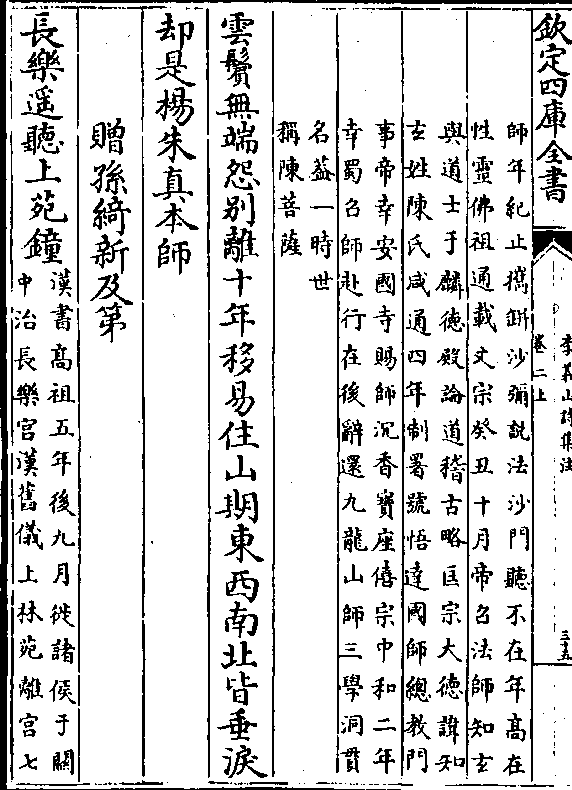 欽定四庫全書
李義山詩集注
卷二上
三十五
師年紀止攜缾沙彌說法沙門聽不在年高在
性靈佛祖通載文宗癸丑十月帝召法師知玄
與道士于麟德殿論道稽古略匡宗大德諱知
玄姓陳氏咸通四年制署號悟達國師總教門
事帝幸安國寺賜師沉香寶座僖宗中和二年
幸蜀召師赴行在後辭還九龍山師三學洞貫
名蓋一時世
稱陳菩薩
雲鬢無端怨別離十年移易住山期東西南北皆垂淚
却是楊朱真本師
贈孫綺新及第
長樂遥聽上苑鐘
漢書高祖五年後九月徙諸侯于關
中治長樂宮漢舊儀上林苑離宮七